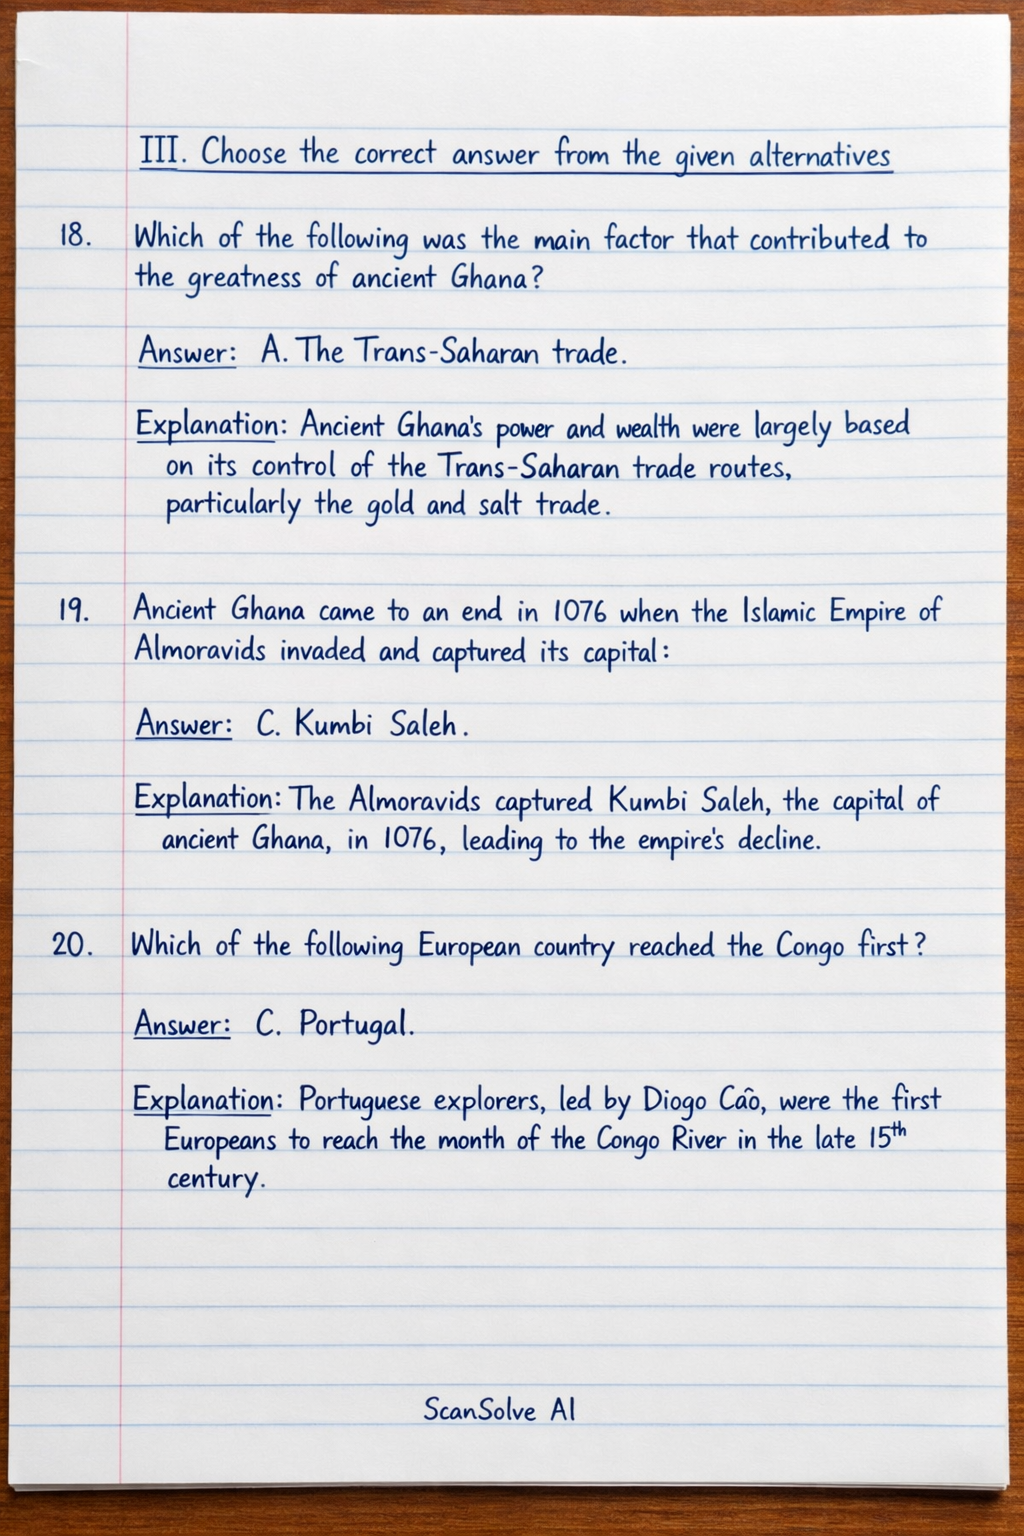 III. Choose the correct answer from the given alternatives
18. Which of the following was the main factor that contributed to
the greatness of ancient Ghana?
Answer: A. The Trans-Saharan trade.
Explanation: Ancient Ghana's power and wealth were largely based
on its control of the Trans-Saharan trade routes,
particularly the gold and salt trade.
19. Ancient Ghana came to an end in 1076 when the Islamic Empire of
Almoravids invaded and captured its capital:
Answer: C. Kumbi Saleh.
Explanation: The Almoravids captured Kumbi Saleh, the capital of
ancient Ghana, in 1076, leading to the empire's decline.
20. Which of the following European country reached the Congo first?
Answer: C. Portugal.
Explanation: Portuguese explorers, led by Diogo Cão, were the first
Europeans to reach the month of the Congo River in the late 15th
century.
ScanSolve AI